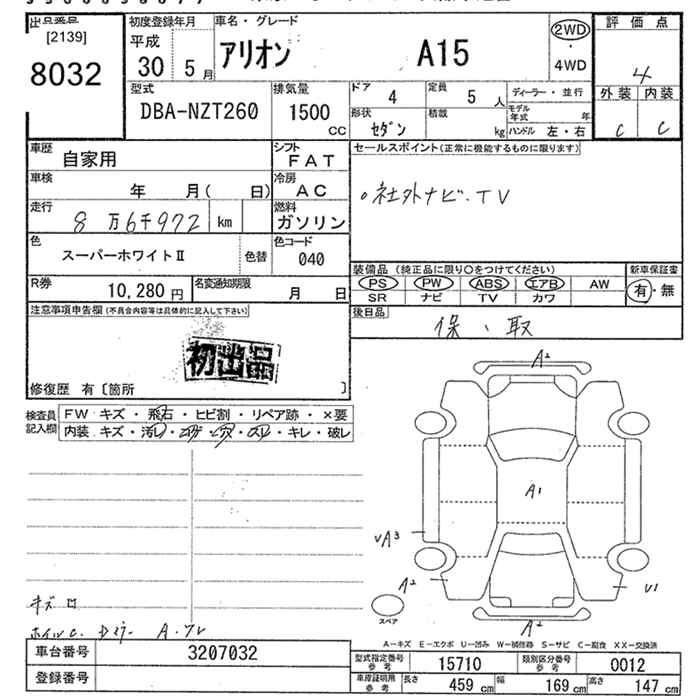 出品票
[2139]
8032
初度登録年月
平成
30 5月
車名・グレード
アリオン A15
2WD
・
4WD
評価点
4
外装 内装
C C
型式
DBA-NZT260
排気量
1500
CC
ドア 4
定員 5 人
形状 セダン
積載 kg
ディーラー・並行
モデル年式 年
ハンドル 左・右
車歴
自家用
シフト
FAT
車検
年 月( 日)
冷房
AC
走行
8万6千972 km
燃料
ガソリン
色
スーパーホワイトⅡ
色替
色コード
040
R券
10,280円
名変通知期限
月 日
セールスポイント(正常に機能するものに限ります)
○社外ナビ・TV
装備品(純正品に限り○をつけてください)
PS PW ABS エアB AW
SR ナビ TV カワ
新車保証書
有・無
後日品
保、取
注意事項申告欄(不具合内容等は具体的に記入して下さい)
初出品
修復歴 有〔箇所 〕
検査員記入欄
FW キズ・飛石・ヒビ割・リペア跡・×要
内装 キズ・汚レ・コゲ・穴・スレ・キレ・破レ
A2
A1
VA3
A2
V1
A2
スペア
キズロ
ホイルC.
A-キズ E-エクボ U-凹み W-補修跡 S-サビ C-腐食 XX-交換済
車台番号 3207032
登録番号
型式指定番号参考 15710
類別区分番号参考 0012
車庫証明用参考 長さ 459cm 幅 169cm 高さ 147cm